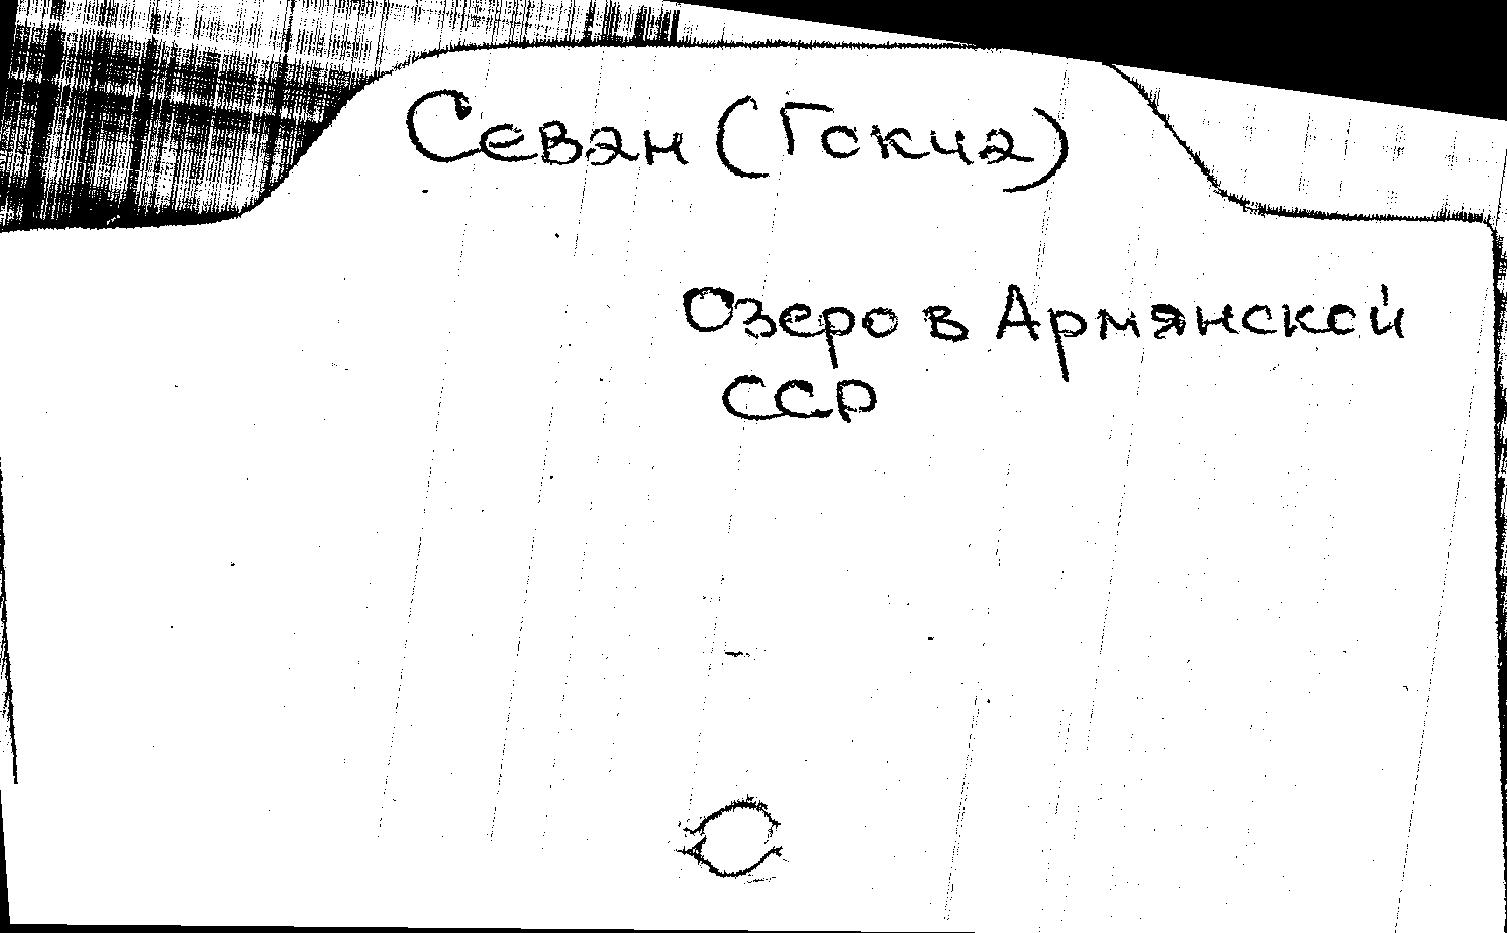 Севан (Гокча)
Озеро в Армянской
ССР